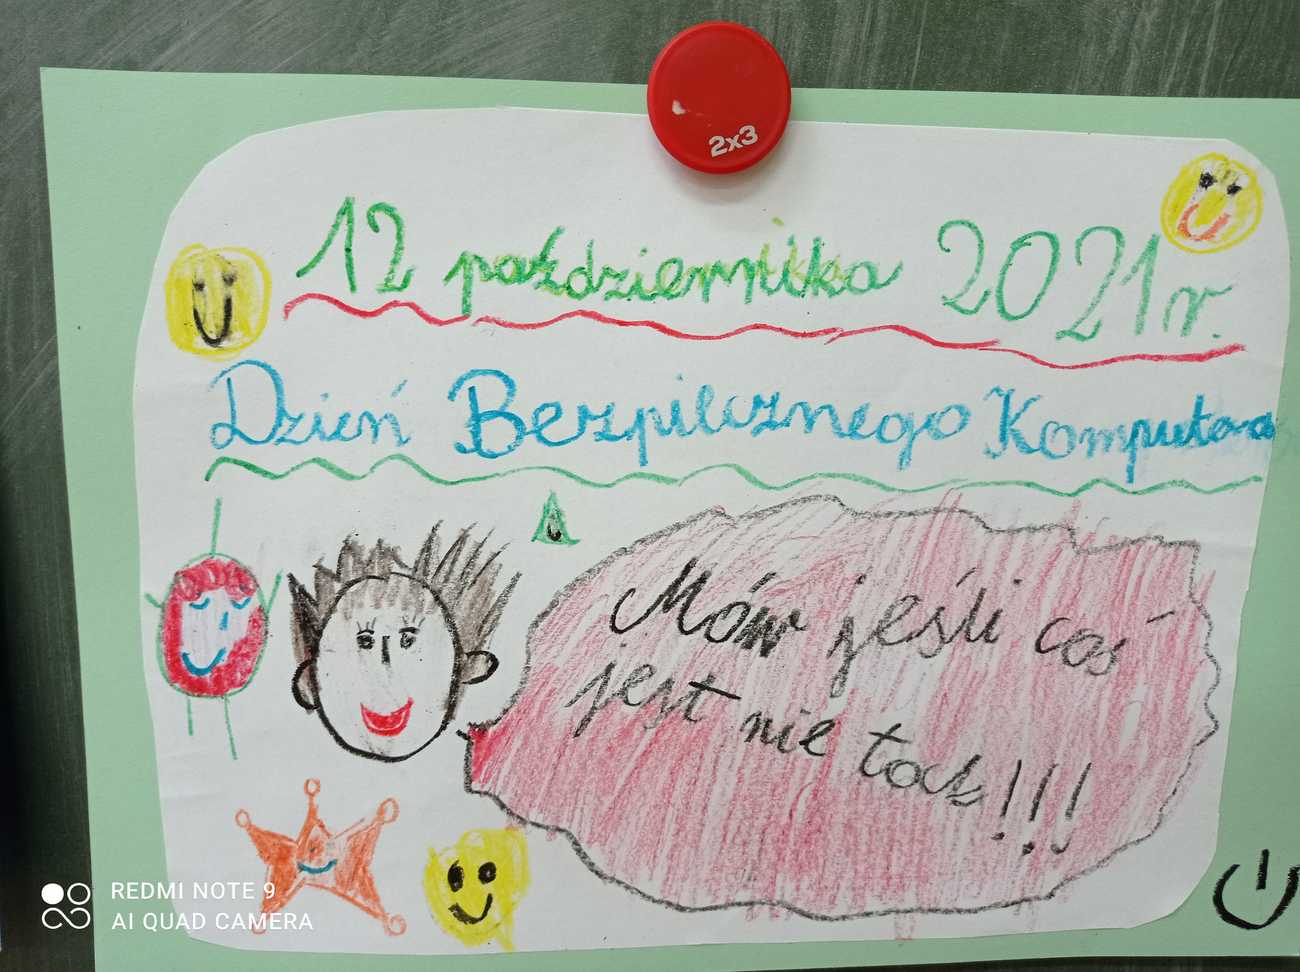 2x3
12 października 2021 r.
Dzień Bezpilcznego Komputera
Mów jeśli coś
jest nie tak!!!
REDMI NOTE 9
AI QUAD CAMERA